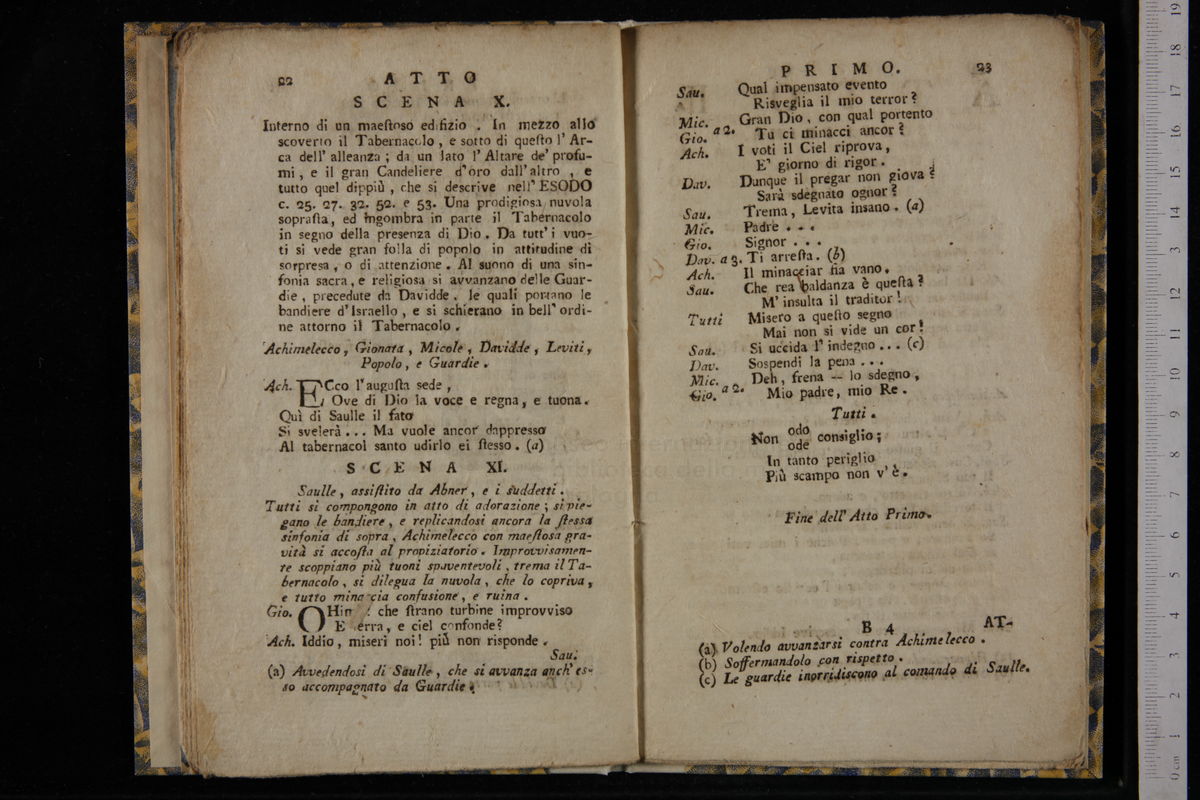 22 ATTO
SCENA X.
Interno di un maeſtoso edifizio . In mezzo allo
scoverto il Tabernacolo , e sotto di queſto l' Ar-
ca dell' alleanza ; da un lato l' Altare de' profu-
mi , e il gran Candeliere d'oro dall'altro , e
tutto quel dippiù , che si descrive nell' ESODO
c. 25. 27. 32. 52. e 53. Una prodigiosa nuvola
sopraſta, ed ingombra in parte il Tabernacolo
in segno della presenza di Dio . Da tutt' i vuo-
ti si vede gran folla di popolo in attitudine di
sorpresa , o di attenzione . Al suono di una sin-
fonia sacra , e religiosa si avvanzano delle Guar-
die , precedute da Davidde . le quali portano le
bandiere d'Israello , e si schierano in bell' ordi-
ne attorno il Tabernacolo .
Achimelecco , Gionata , Micole , Davidde , Leviti ,
Popolo , e Guardie .
Ach. ECco l'auguſta sede ,
Ove di Dio la voce e regna, e tuona.
Quì di Saulle il fato
Si svelerà ... Ma vuole ancor dappresso
Al tabernacol santo udirlo ei ſtesso . (a)
SCENA XI.
Saulle , assiſtito da Abner , e i suddetti .
Tutti si compongono in atto di adorazione ; si pie-
gano le bandiere , e replicandosi ancora la ſtessa
sinfonia di sopra , Achimelecco con maeſtosa gra-
vità si accoſta al propiziatorio . Improvvisamen-
te scoppiano più tuoni spaventevoli , trema il Ta-
bernacolo , si dilegua la nuvola , che lo copriva ,
e tutto minaccia confusione , e ruina .
Gio. OHimè : che ſtrano turbine improvviso
E terra, e ciel confonde?
Ach. Iddio, miseri noi! più non risponde .
Sau.
(a) Avvedendosi di Saulle , che si avvanza anch' es-
so accompagnato da Guardie .
PRIMO. 23
Sau. Qual impensato evento
Risveglia il mio terror?
Mic. Gran Dio , con qual portento
Gio. a 2. Tu ci minacci ancor ?
Ach. I voti il Ciel riprova ,
E' giorno di rigor .
Dav. Dunque il pregar non giova ?
Sarà sdegnato ognor?
Sau. Trema, Levita insano . (a)
Mic. Padre . . .
Gio. Signor . . .
Dav. a 3. Ti arreſta. (b)
Ach. Il minacciar fia vano.
Sau. Che rea baldanza è queſta ?
M' insulta il traditor !
Tutti Misero a queſto segno
Mai non si vide un cor!
Sau. Si uccida l' indegno ... (c)
Dav. Sospendi la pena ...
Mic. Deh, frena -- lo sdegno ,
Gio. a 2. Mio padre, mio Re .
Tutti .
odo
Non ode consiglio ;
In tanto periglio
Più scampo non v' è .
Fine dell' Atto Primo.
B 4 AT-
(a) Volendo avvanzarsi contra Achimelecco .
(b) Soffermandolo con rispetto .
(c) Le guardie inorridiscono al comando di Saulle.